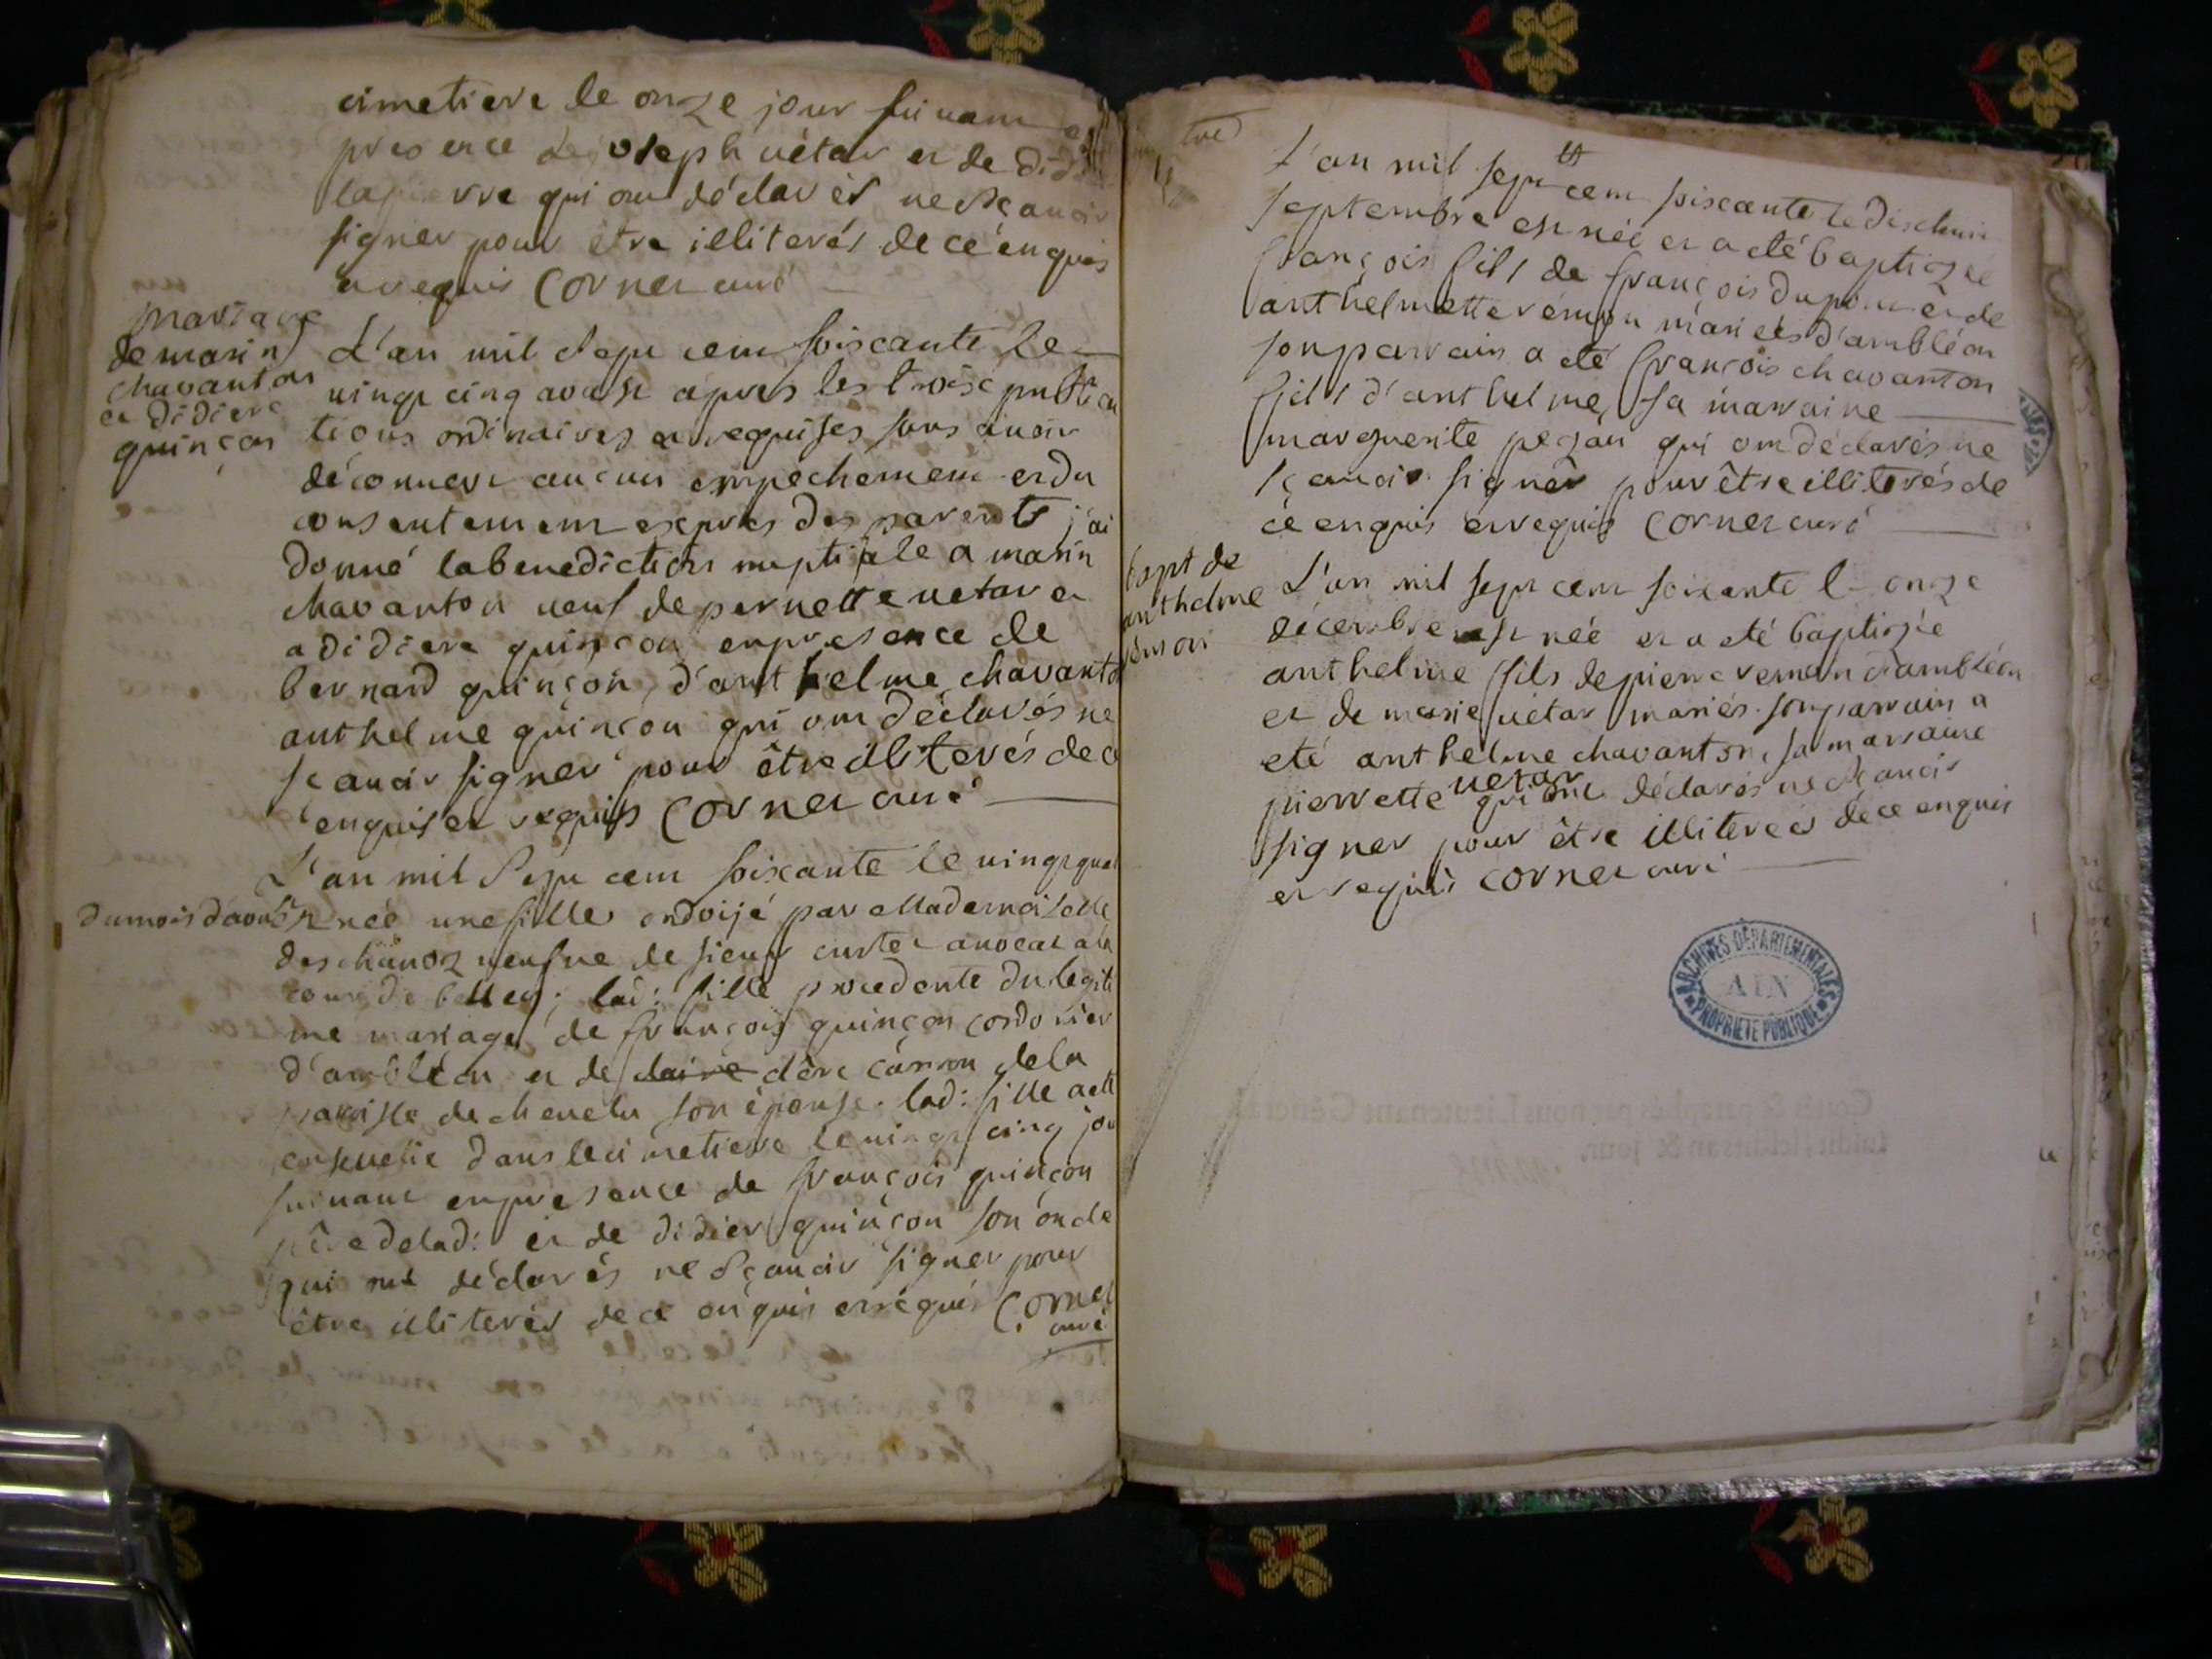 cimetiere le onze jour suivant
presence de joseph vétar et de
lapierre qui ont déclarés ne sçavoir
signer pour etre illiterés de ce enquis
et requis Cornet curé
mariage
de marin
chavanton
et didiere
quinçon
L'an mil sept cent soixante le
vingt cinq aoust apres les trois publica
tions ordinaires et requises sans avoir
déconvert aucun empechement et du
consentement exprès des parents j'ai
donné la benediction nuptiale a marin
chavanton veuf de pernette vetar et
a didiere quinçon en presence de
bernard quinçon, d'anthelme chavanton
anthelme quinçon qui ont déclarés ne
scavoir signer pour être illiterés de ce
enquis et requis Cornet curé
L'an mil sept cent soixante le vingt quat
du mois d'aoust est née une fille ondoijé par Mademoiselle
deschanoz veufve de sieur curtet avocat a la
cour de belley; lad: fille procedente du legiti
me mariage de françois quinçon cordonier
d'ambléon et de claire dère carron de la
paroisse de chemelu son épouse. lad: fille a eté
ensevelie dans le cimetiere le vingt cinq jou
suivant en presence de françois quinçon
père de lad: et de didier quinçon son oncle
qui ont déclarés ne sçavoir signer pour
être illiterés de ce enquis et requis Cornet
curé
L'an mil sept cent soixante le dixhuit
septembre est née et a eté baptizée
françois fils de françois dupont et de
anthelmette vémon mariés d'ambléon
son parrain a eté françois chavanton
fils d'anthelme, sa marraine
marguerite pezan qui ont déclarés ne
sçavoir signer pour être illiterés de
ce enquis et requis Cornet curé
bapt de
anthelme
vémon
L'an mil sept cent soixante le onze
décembre est née et a eté baptizée
anthelme fils de pierre vemon d'ambléon
et de marie vétar mariés. son parrain a
eté anthelme chavanton, sa marraine
pierrette vetar qui ont déclarés ne sçavoir
signer pour être illiterés de ce enquis
et requis Cornet curé
ARCHIVES DÉPARTEMENTALES
AIN
PROPRIÉTÉ PUBLIQUE